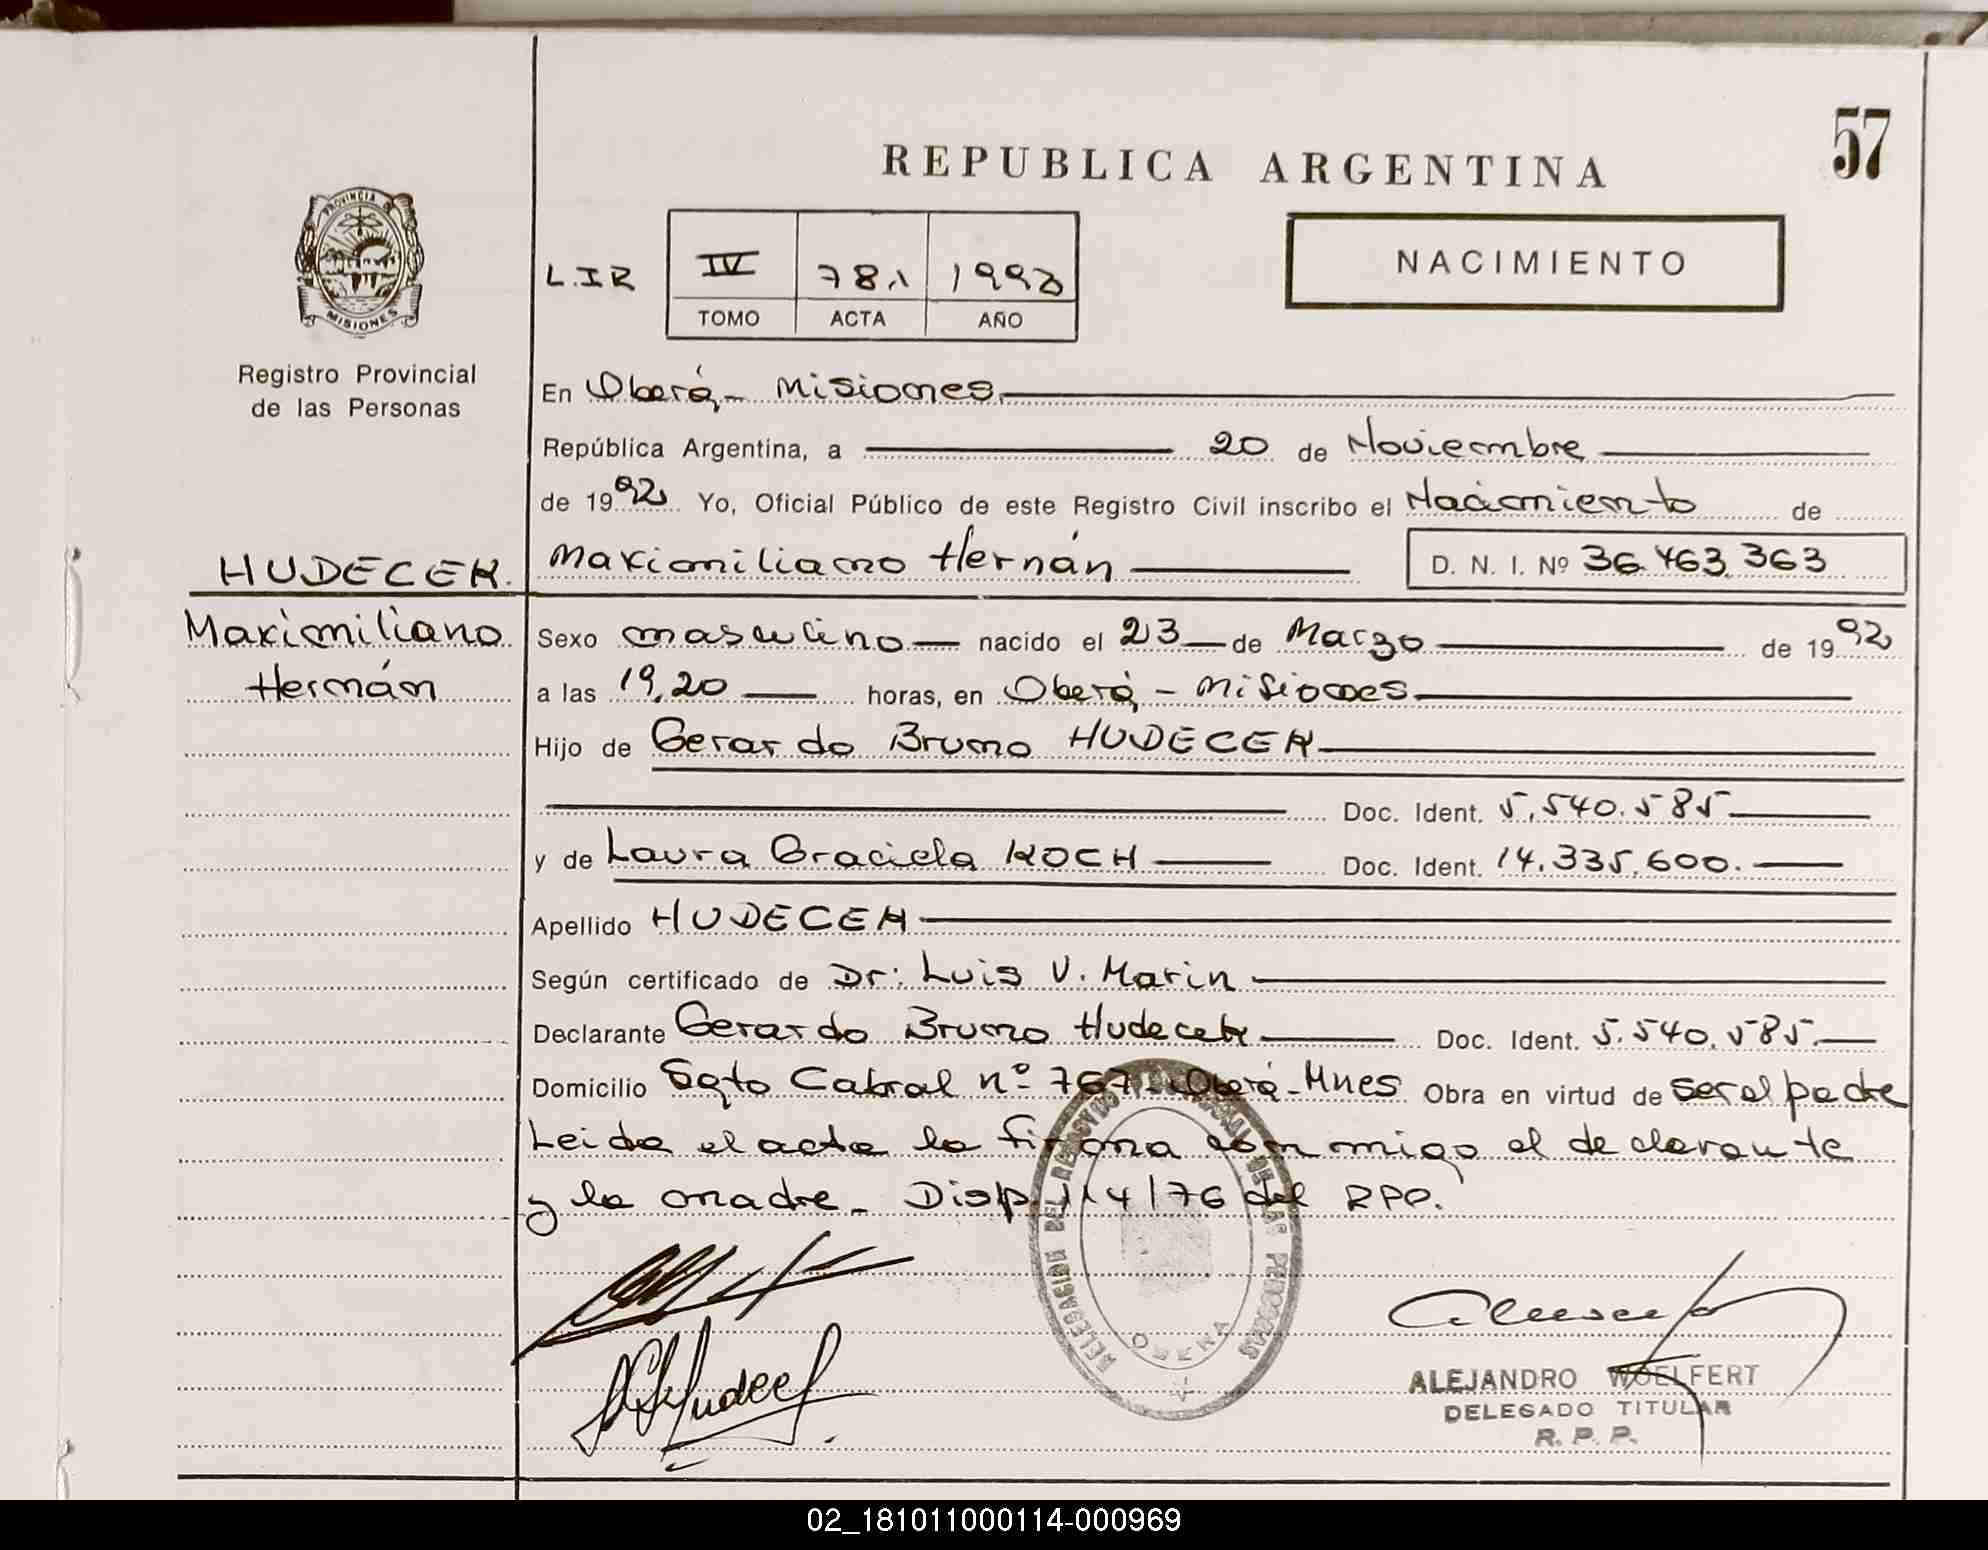 57
REPUBLICA ARGENTINA
PROVINCIA DE
MISIONES
NACIMIENTO
L.I.R IV 781 1992
TOMO ACTA AÑO
Registro Provincial
de las Personas
En Oberá - Misiones
República Argentina, a 20 de Noviembre
de 1992 Yo, Oficial Público de este Registro Civil inscribo el Nacimiento de
HUDECEK. Maximiliano Hernán D. N. I. Nº 36.463.363
Maximiliano Sexo masculino nacido el 23 de Marzo de 1992
Hernán a las 19,20 horas, en Oberá - Misiones
Hijo de Gerardo Bruno HUDECEK
Doc. Ident. 5.540.585
y de Laura Graciela KOCH Doc. Ident. 14.335.600.
Apellido HUDECEK
Según certificado de Dr: Luis V. Marin
Declarante Gerardo Bruno Hudecek Doc. Ident. 5.540.585.
Domicilio Sgto Cabral nº 767 - Oberá - Mnes Obra en virtud de ser el padre
Leida el acta la firma conmigo el declarante
y la madre. Disp. 114/76 del RPP.
DELEGACIÓN DEL REGISTRO PROVINCIAL DE LAS PERSONAS
OBERA
ALEJANDRO WOELFERT
DELEGADO TITULAR
R. P. P.
02_181011000114-000969